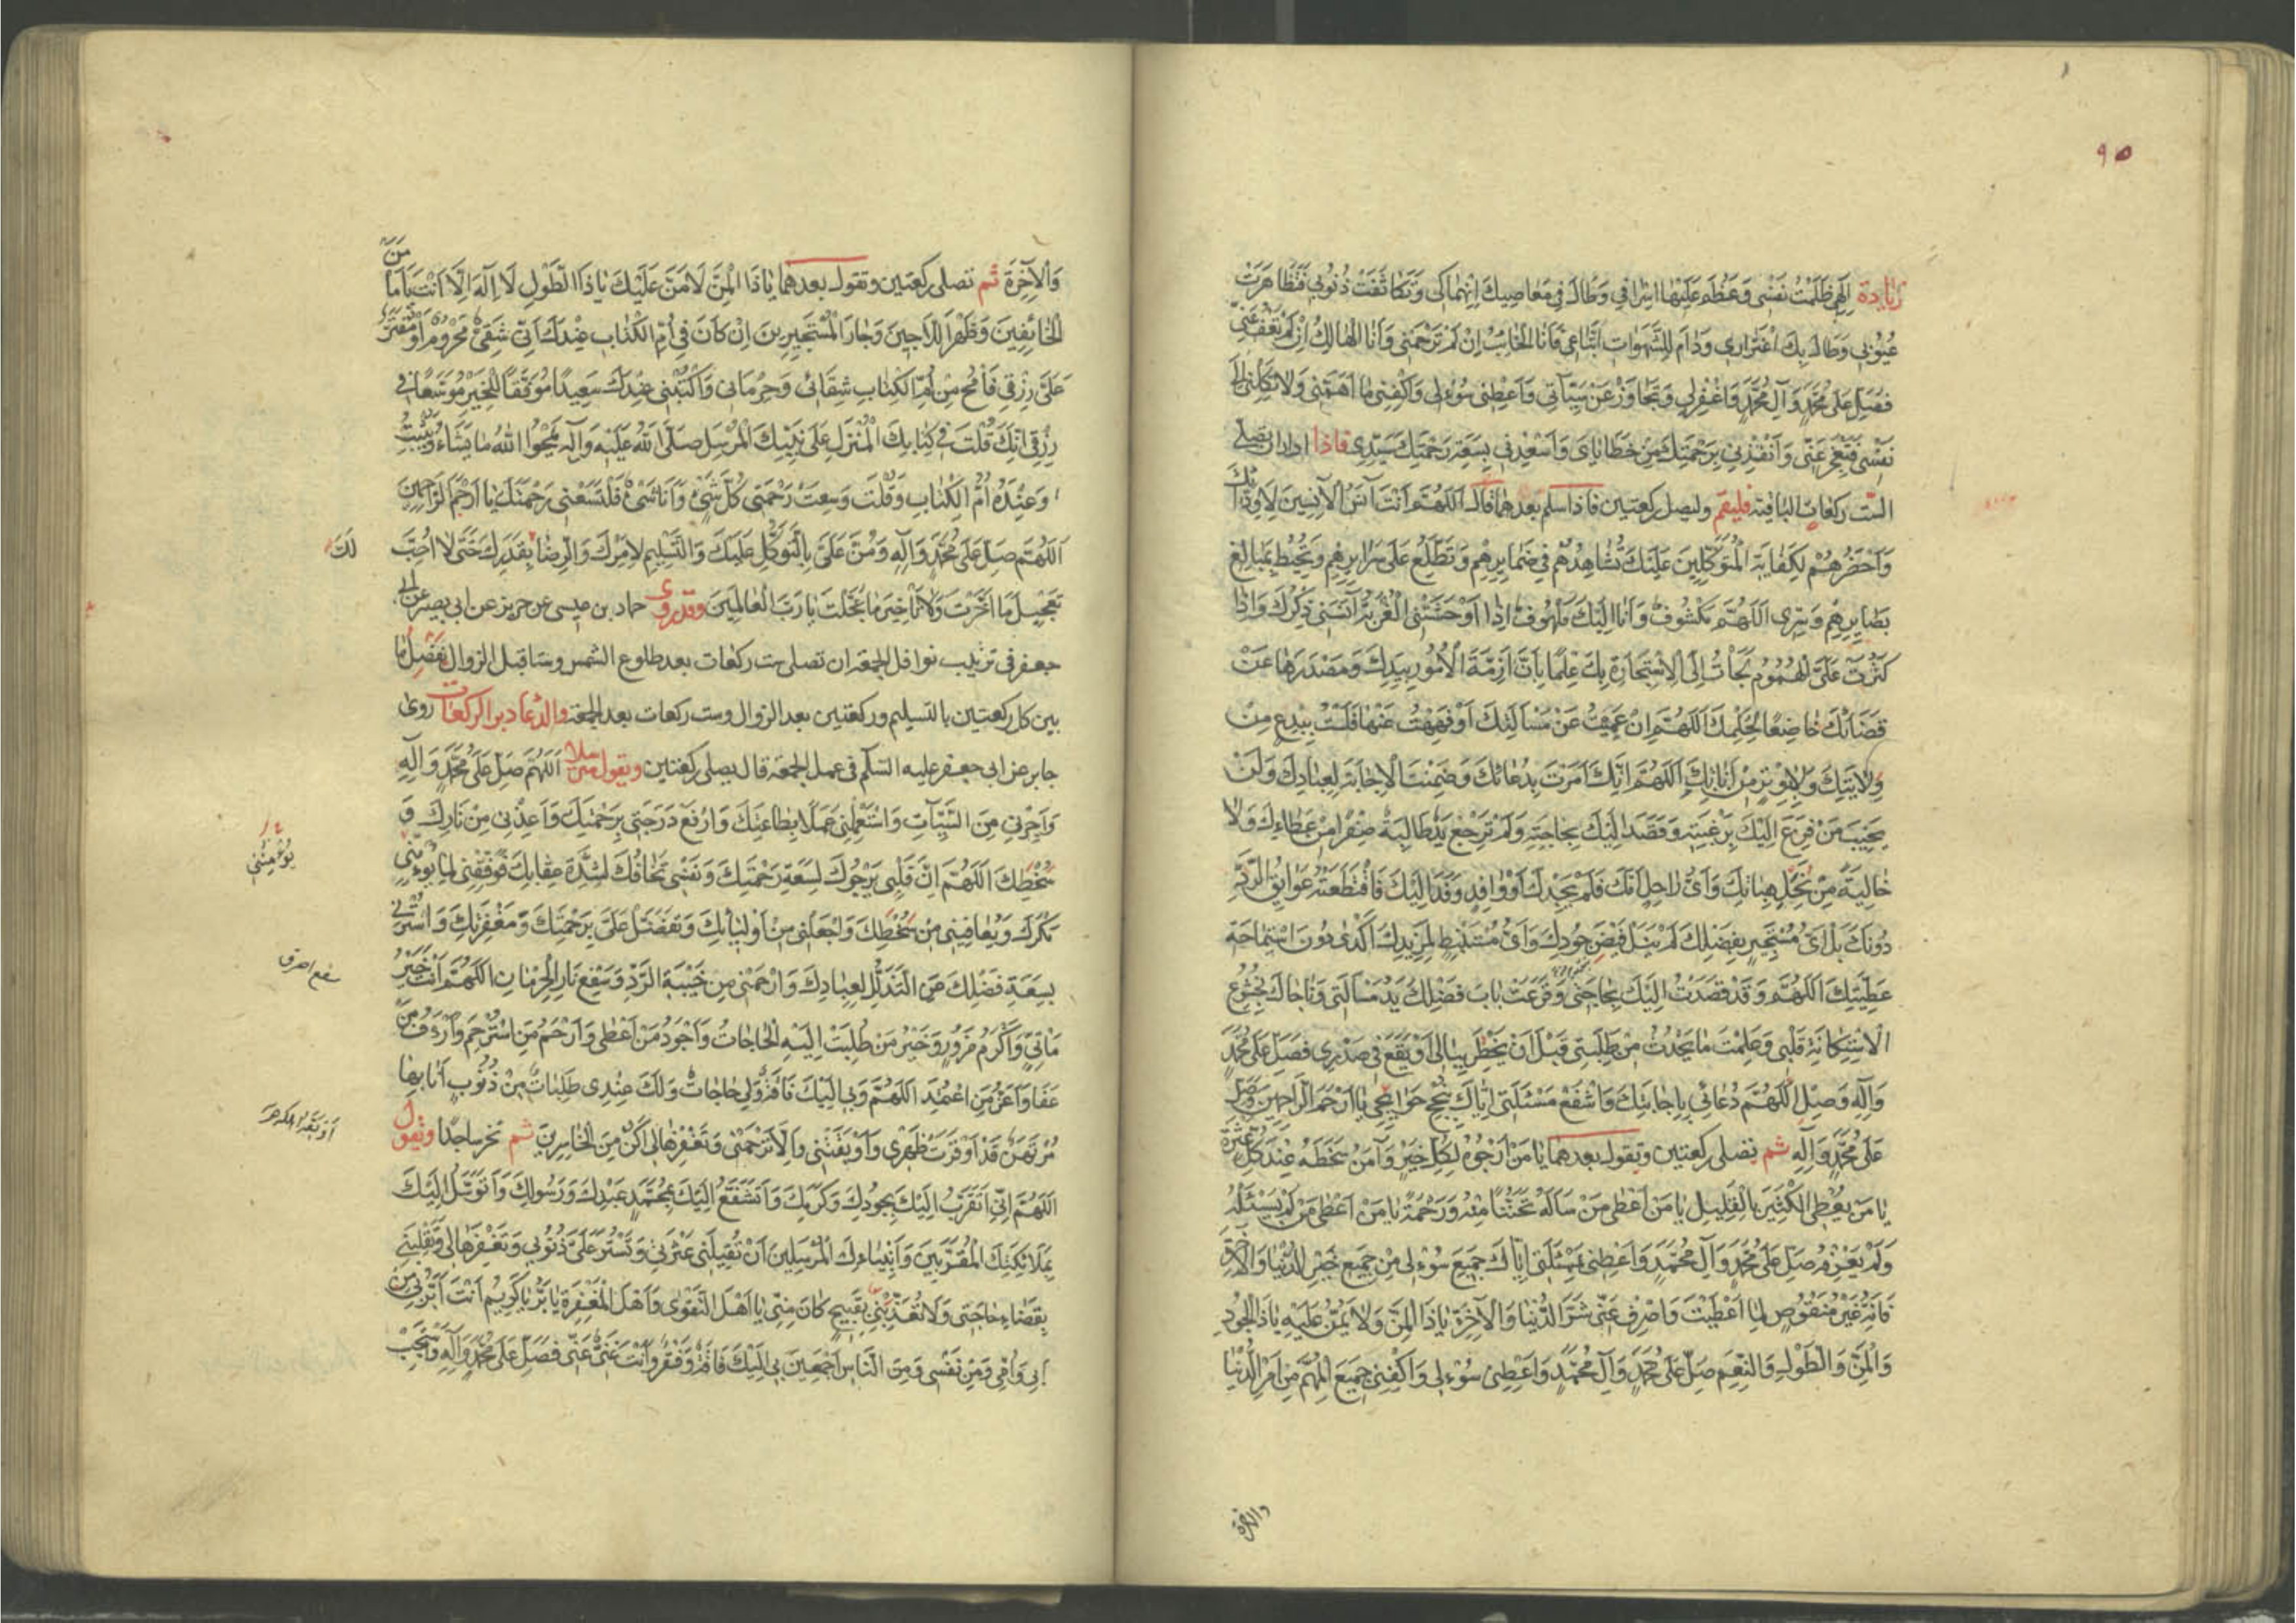 ٩٥
زيادة اِلٰهِي ظَلَمْتُ نَفْسِي وَعَظُمَ عَلَيْهَا اِسْرَافِي وَطَالَ فِي مَعَاصِيكَ اِنْهِمَاكِي وَتَكَاثَفَتْ ذُنُوبِي فَتَظَاهَرَتْ
عُيُوبِي وَطَالَ بِكَ اغْتِرَارِي وَدَامَ لِلشَّهَوَاتِ اتِّبَاعِي فَاَنَا الْخَائِبُ اِنْ لَمْ تَرْحَمْنِي وَاَنَا الْهَالِكُ اِنْ لَمْ تَعْفُ عَنِّي
فَصَلِّ عَلَى مُحَمَّدٍ وَآلِ مُحَمَّدٍ وَاغْفِرْ لِي وَتَجَاوَزْ عَنْ سَيِّآتِي وَاَعْطِنِي سُؤْلِي وَاكْفِنِي مَا اَهَمَّنِي وَلَا تَكِلْنِي اِلَى
نَفْسِي فَتَعْجِزَ عَنِّي وَاَنْقِذْنِي بِرَحْمَتِكَ مِنْ خَطَايَايَ وَاَسْعِدْنِي بِسَعَةِ رَحْمَتِكَ سَيِّدِي فاذا اراد ان يصلي
الست ركعات الباقية فليقم وليصل ركعتين فاذا سلم بعدهما قال اَللّٰهُمَّ اَنْتَ آنَسُ الْآنِسِينَ لِاَوِدَّائِكَ
وَاَحْضَرُهُمْ لِكِفَايَةِ الْمُتَوَكِّلِينَ عَلَيْكَ تُشَاهِدُهُمْ فِي ضَمَائِرِهِمْ وَتَطَّلِعُ عَلَى سَرَائِرِهِمْ وَتُحِيطُ بِمَبَالِغِ
بَصَائِرِهِمْ وَسِرِّي اَللّٰهُمَّ مَكْشُوفٌ وَاَنَا اِلَيْكَ مَلْهُوفٌ اِذَا اَوْحَشَتْنِي الْغُرْبَةُ آنَسَنِي ذِكْرُكَ وَاِذَا
كَثُرَتْ عَلَيَّ الْهُمُومُ لَجَأْتُ اِلَى الْاِسْتِجَارَةِ بِكَ عِلْمًا بِاَنَّ اَزِمَّةَ الْاُمُورِ بِيَدِكَ وَمَصْدَرَهَا عَنْ
قَضَائِكَ خَاضِعًا لِحُكْمِكَ اَللّٰهُمَّ اِنْ عَمِيتُ عَنْ مَسْأَلَتِكَ اَوْ فَهِهْتُ عَنْهَا فَلَسْتُ بِبِدْعٍ مِنْ
وِلَايَتِكَ وَلَا بِوِتْرٍ مِنْ اَنَاتِكَ اَللّٰهُمَّ اِنَّكَ اَمَرْتَ بِدُعَائِكَ وَضَمِنْتَ الْاِجَابَةَ لِعِبَادِكَ وَلَنْ
يَخِيبَ مَنْ فَزِعَ اِلَيْكَ بِرَغْبَتِهِ وَقَصَدَ اِلَيْكَ بِحَاجَتِهِ وَلَمْ تَرْجِعْ يَدٌ طَالِبَةٌ صِفْرًا مِنْ عَطَائِكَ وَلَا
خَالِيَةً مِنْ نِحَلِ هِبَاتِكَ وَاَيُّ رَاحِلٍ اَمَّكَ فَلَمْ يَجِدْكَ اَوْ وَافِدٍ وَفَدَ اِلَيْكَ فَاقْتَطَعَتْهُ عَوَائِقُ الرَّدِّ
دُونَكَ بَلْ اَيُّ مُسْتَجِيرٍ بِفَضْلِكَ لَمْ يَنَلْ فَيْضَ جُودِكَ وَاَيُّ مُسْتَنْبِطٍ لِمَزِيدِكَ اَكْدَى دُونَ اسْتِمَاحَةِ
عَطِيَّتِكَ اَللّٰهُمَّ وَقَدْ قَصَدْتُ اِلَيْكَ بِحَاجَتِي وَقَرَعَتْ بَابَ فَضْلِكَ يَدُ مَسْأَلَتِي وَنَاجَاكَ بِخُشُوعِ
الْاِسْتِكَانَةِ قَلْبِي وَعَلِمْتَ مَا يَحْدُثُ مِنْ طَلِبَتِي قَبْلَ اَنْ يَخْطُرَ بِبَالِي اَوْ يَقَعَ فِي صَدْرِي فَصَلِّ عَلَى مُحَمَّدٍ
وَآلِهِ وَصِلِ اللّٰهُمَّ دُعَائِي بِاِجَابَتِكَ وَاشْفَعْ مَسْئَلَتِي اِيَّاكَ بِنُجْحِ حَوَائِجِي يَا اَرْحَمَ الرَّاحِمِينَ وَصَلِّ
عَلَى مُحَمَّدٍ وَآلِهِ ثم تصلي ركعتين وتقول بعدهما يَا مَنْ اَرْجُوهُ لِكُلِّ خَيْرٍ وَآمَنُ سَخَطَهُ عِنْدَ كُلِّ عَثْرَةٍ
يَا مَنْ يُعْطِي الْكَثِيرَ بِالْقَلِيلِ يَا مَنْ اَعْطَى مَنْ سَاَلَهُ تَحَنُّنًا مِنْهُ وَرَحْمَةً يَا مَنْ اَعْطَى مَنْ لَمْ يَسْئَلْهُ
وَلَمْ يَعْرِفْهُ صَلِّ عَلَى مُحَمَّدٍ وَآلِ مُحَمَّدٍ وَاَعْطِنِي بِمَسْئَلَتِي اِيَّاكَ جَمِيعَ سُؤْلِي مِنْ جَمِيعِ خَيْرِ الدُّنْيَا وَالْآخِرَةِ
فَاِنَّهُ غَيْرُ مَنْقُوصٍ لِمَا اَعْطَيْتَ وَاصْرِفْ عَنِّي شَرَّ الدُّنْيَا وَالْآخِرَةِ يَا ذَا الْمَنِّ وَلَا يُمَنُّ عَلَيْهِ يَا ذَا الْجُودِ
وَالْمَنِّ وَالطَّوْلِ وَالنِّعَمِ صَلِّ عَلَى مُحَمَّدٍ وَآلِ مُحَمَّدٍ وَاَعْطِنِي سُؤْلِي وَاكْفِنِي جَمِيعَ الْمُهِمِّ مِنْ اَمْرِ الدُّنْيَا
والآخرة
وَالْآخِرَةِ ثم تصلي ركعتين وتقول بعدهما يَا ذَا الْمَنِّ لَا مَنَّ عَلَيْكَ يَا ذَا الطَّوْلِ لَا اِلٰهَ اِلَّا اَنْتَ يَا اَمَانَ
الْخَائِفِينَ وَظَهْرَ اللَّاجِينَ وَجَارَ الْمُسْتَجِيرِينَ اِنْ كَانَ فِي اُمِّ الْكِتَابِ عِنْدَكَ اَنِّي شَقِيٌّ مَحْرُومٌ اَوْ مُقَتَّرٌ
عَلَيَّ رِزْقِي فَامْحُ مِنْ اُمِّ الْكِتَابِ شِقَائِي وَحِرْمَانِي وَاكْتُبْنِي عِنْدَكَ سَعِيدًا مُوَفَّقًا لِلْخَيْرِ مُوَسَّعًا فِي
رِزْقِي اِنَّكَ قُلْتَ فِي كِتَابِكَ الْمُنْزَلِ عَلَى نَبِيِّكَ الْمُرْسَلِ صَلَّى اللّٰهُ عَلَيْهِ وَآلِهِ يَمْحُوا اللّٰهُ مَا يَشَاءُ وَيُثْبِتُ
وَعِنْدَهُ اُمُّ الْكِتَابِ وَقُلْتَ وَسِعَتْ رَحْمَتِي كُلَّ شَيْءٍ وَاَنَا شَيْءٌ فَلْتَسَعْنِي رَحْمَتُكَ يَا اَرْحَمَ الرَّاحِمِينَ
اَللّٰهُمَّ صَلِّ عَلَى مُحَمَّدٍ وَآلِهِ وَمُنَّ عَلَيَّ بِالتَّوَكُّلِ عَلَيْكَ وَالتَّسْلِيمِ لِاَمْرِكَ وَالرِّضَا بِقَدَرِكَ حَتَّى لَا اُحِبَّ
لَكَ
تَعْجِيلَ مَا اَخَّرْتَ وَلَا تَأْخِيرَ مَا عَجَّلْتَ يَا رَبَّ الْعَالَمِينَ وقدروى حماد بن عيسى عن حريز عن ابي بصير عن ابي
جعفر في ترتيب نوافل الجمعة ان تصلي ست ركعات بعد طلوع الشمس وستا قبل الزوال تفصل ما
بين كل ركعتين بالتسليم وركعتين بعد الزوال وست ركعات بعد الجمعة والدعا دبر الركعات روى
جابر عن ابي جعفر عليه السلم في عمل الجمعة قال يصلي ركعتين ويقول اَللّٰهُمَّ صَلِّ عَلَى مُحَمَّدٍ وَآلِهِ
وَاَجِرْنِي مِنَ السَّيِّآتِ وَاسْتَعْمِلْنِي عَمَلًا بِطَاعَتِكَ وَارْفَعْ دَرَجَتِي بِرَحْمَتِكَ وَاَعِذْنِي مِنْ نَارِكَ وَ
سُخْطِكَ اَللّٰهُمَّ اِنَّ قَلْبِي يَرْجُوكَ لِسَعَةِ رَحْمَتِكَ وَنَفْسِي تَخَافُكَ لِشِدَّةِ عِقَابِكَ فَوَفِّقْنِي لِمَا يُؤْمِنُنِي
يُؤْمِنُنِي
مَكْرَكَ وَيُعَافِينِي مِنْ سُخْطِكَ وَاجْعَلْنِي مِنْ اَوْلِيَائِكَ وَتَفَضَّلْ عَلَيَّ بِرَحْمَتِكَ وَمَغْفِرَتِكَ وَاسْتُرْنِي
بِسَعَةِ فَضْلِكَ عَنِ التَّذَلُّلِ لِعِبَادِكَ وَارْحَمْنِي مِنْ خَيْبَةِ الرَّدِّ وَسَفْعِ نَارِ الْحِرْمَانِ اَللّٰهُمَّ اَنْتَ خَيْرُ
سفع احرق
مَأْتِيٍّ وَاَكْرَمُ مَزُورٍ وَخَيْرُ مَنْ طُلِبَتْ اِلَيْهِ الْحَاجَاتُ وَاَجْوَدُ مَنْ اَعْطَى وَاَرْحَمُ مَنِ اسْتُرْحِمَ وَاَرْءَفُ مَنْ
عَفَا وَاَعَزُّ مَنِ اعْتُمِدَ اَللّٰهُمَّ وَبِي اِلَيْكَ فَاقَةٌ وَلِي حَاجَاتٌ وَلَكَ عِنْدِي طَلِبَاتٌ مِنْ ذُنُوبٍ اَنَا بِهَا
مُرْتَهَنٌ قَدْ اَوْقَرَتْ ظَهْرِي وَاَوْبَقَتْنِي وَاِلَّا تَرْحَمْنِي وَتَغْفِرْهَا لِي اَكُنْ مِنَ الْخَاسِرِينَ ثم تخر ساجدا وتقول
اَللّٰهُمَّ اِنِّي اَتَقَرَّبُ اِلَيْكَ بِجُودِكَ وَكَرَمِكَ وَاَتَشَفَّعُ اِلَيْكَ بِمُحَمَّدٍ عَبْدِكَ وَرَسُولِكَ وَاَتَوَسَّلُ اِلَيْكَ
بِمَلَائِكَتِكَ الْمُقَرَّبِينَ وَاَنْبِيَاءِكَ الْمُرْسَلِينَ اَنْ تُقِيلَنِي عَثْرَتِي وَتَسْتُرَ عَلَيَّ ذُنُوبِي وَتَغْفِرَهَا لِي وَتَقْلِبَنِي
بِقَضَاءِ حَاجَتِي وَلَا تُعَذِّبْنِي بِقَبِيحٍ كَانَ مِنِّي يَا اَهْلَ التَّقْوَى وَاَهْلَ الْمَغْفِرَةِ يَا بَرُّ يَا كَرِيمُ اَنْتَ اَبَرُّ بِي مِنْ
اَبِي وَاُمِّي وَمِنْ نَفْسِي وَمِنَ النَّاسِ اَجْمَعِينَ بِي اِلَيْكَ فَاقَةٌ وَفَقْرٌ وَاَنْتَ غَنِيٌّ عَنِّي فَصَلِّ عَلَى مُحَمَّدٍ وَآلِهِ وَاسْتَجِبْ